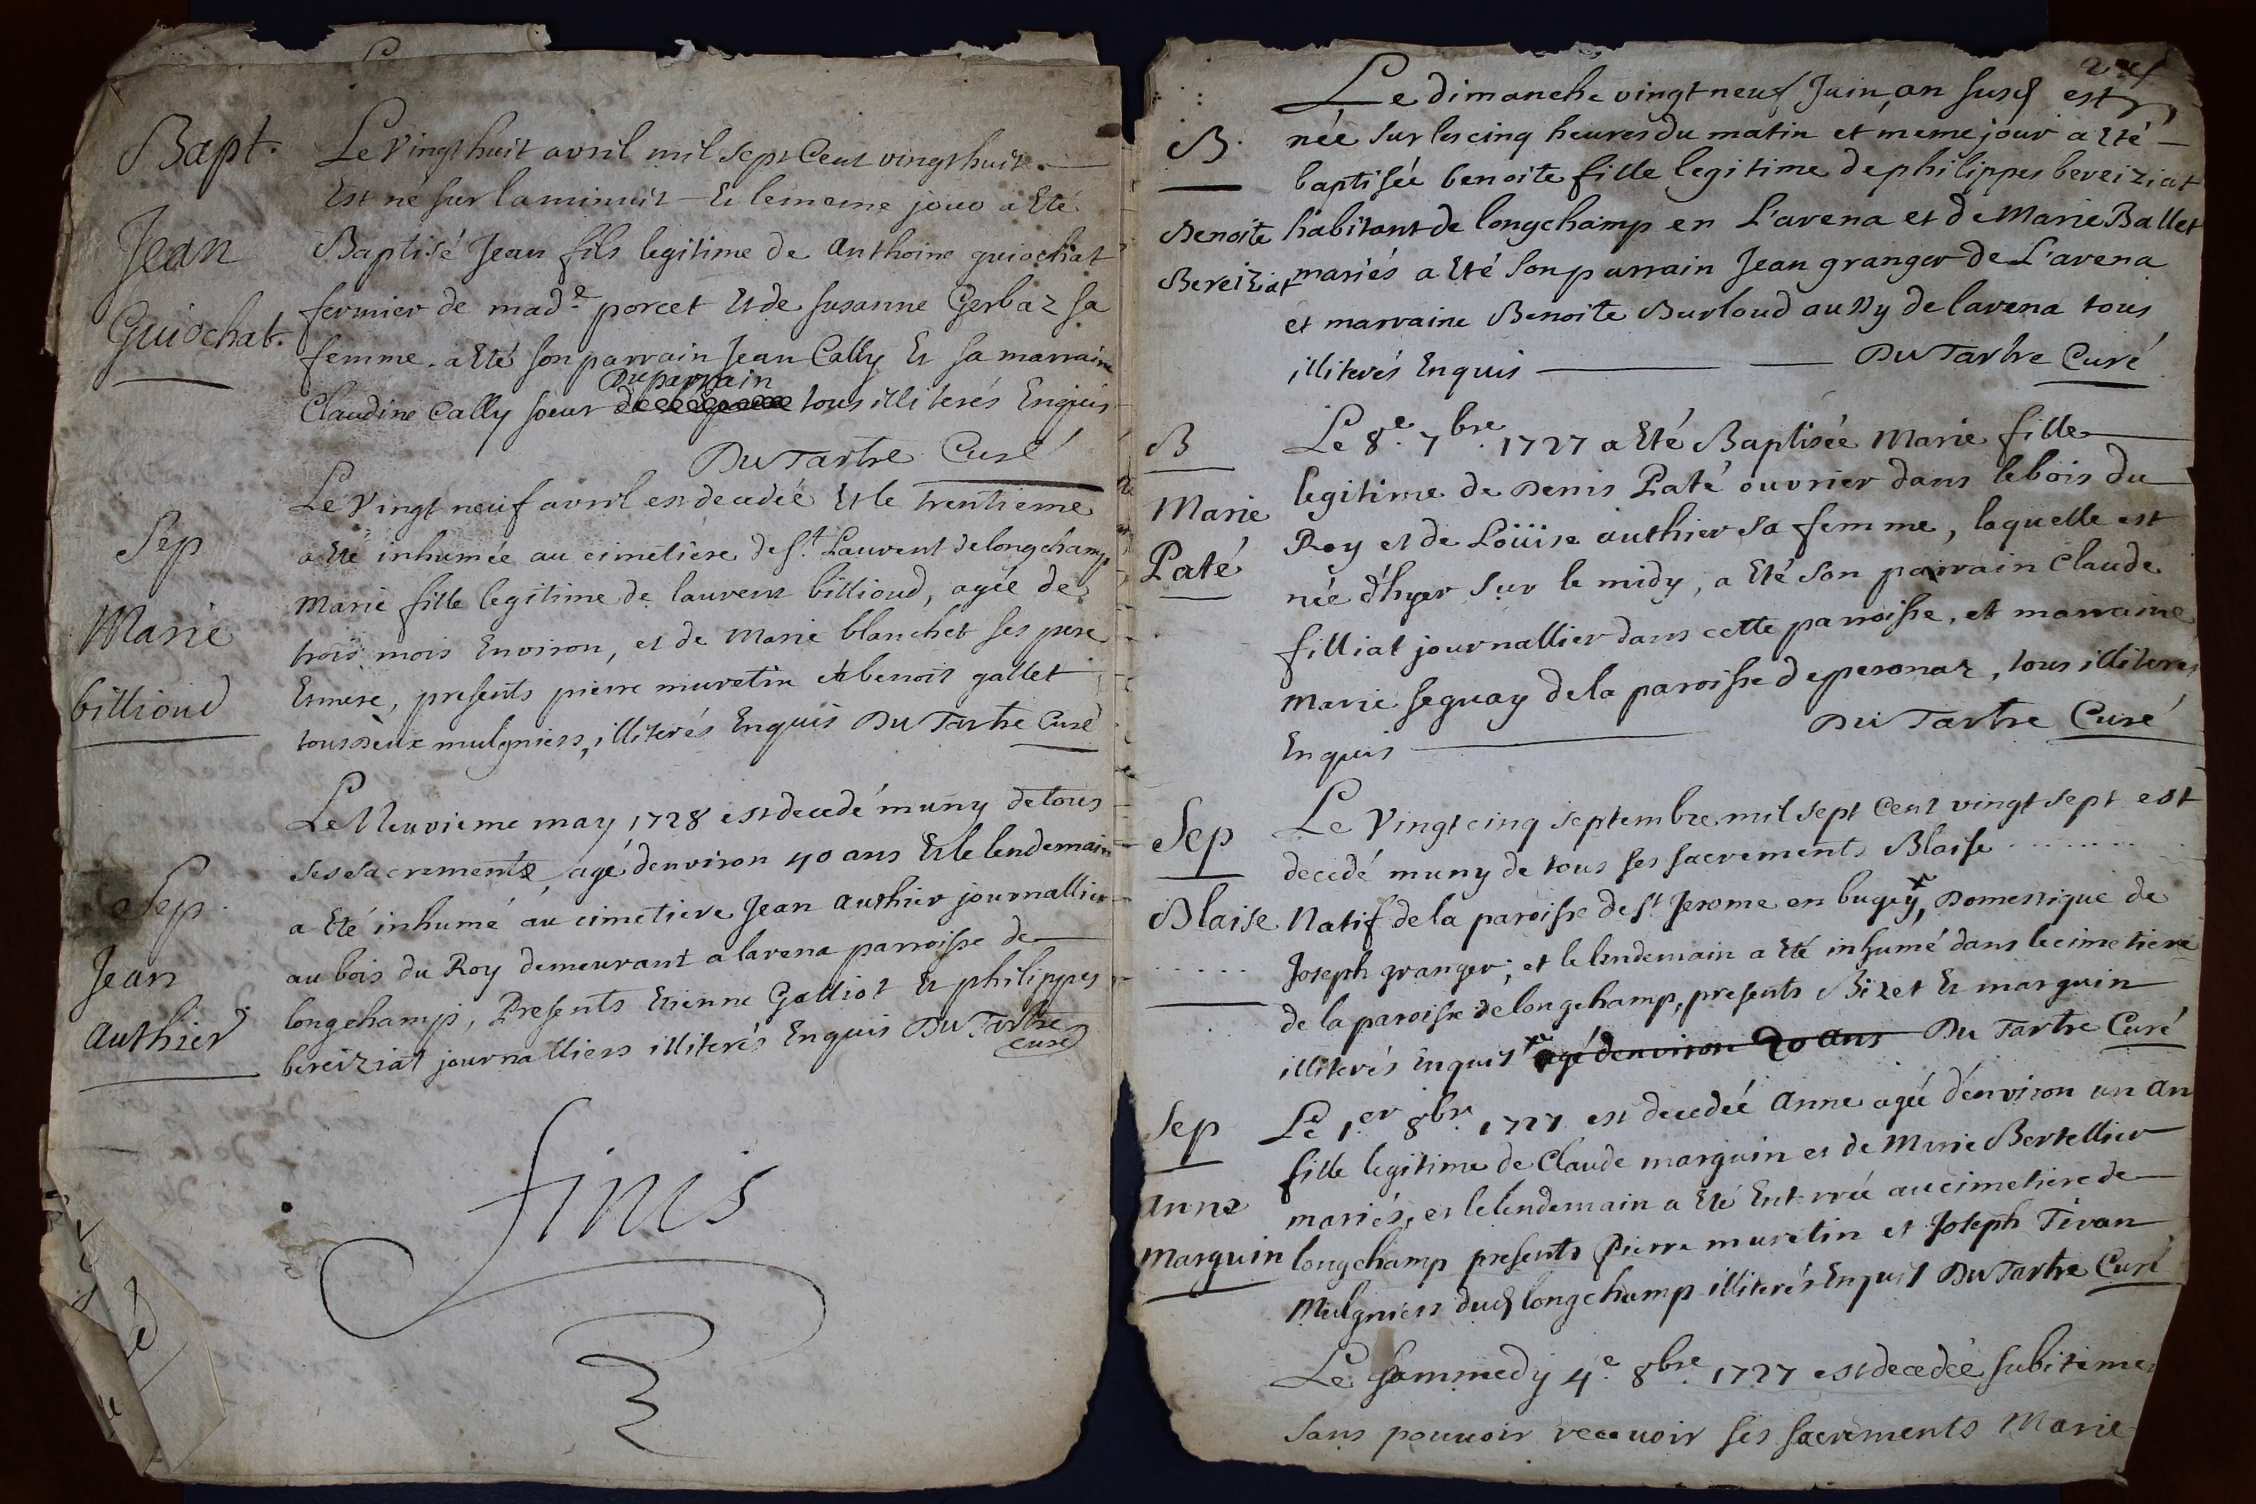 Bapt.
Jean
Guiochat.
Le Vingt huit avril mil sept Cent vingt huit.
Est né sur la minuit Et le meme jour a Eté
Baptisé Jean fils legitime de Anthoine guiochat
fermier de made porcet Et de susanne Gerbaz sa
femme. a Eté son parrain Jean Cally Et sa marraine
du parrain
Claudine Cally soeur tous illiterés Enquis
Du Tartre Curé
Sep
Marie
billioud
Le Vingt neuf avril est decedée Et le trentieme
a Eté inhumée au cimetière de St. Laurent de longchamp
Marie fille legitime de laurent billioud, agée de
trois mois Environ, et de Marie blanchet ses pere
Et mere, presents pierre muretin et benoit gallet
tous deux mulgniers, illiterés Enquis Du Tartre Curé
Sep
Jean
authier
Le Neuvieme may 1728 est decedé muny de tous
ses sacrements, agé denviron 40 ans Et le lendemain
a Eté inhumé au cimetiere Jean authier journallier
au bois du Roy demeurant a lavena parroisse de
longchamp, Presents Etienne Galliot Et philippes
bereiziat journalliers illiterés Enquis Du Tartre
curé
finis
B.
Benoite
Bereiziat
Le dimanche vingt neuf Juin, an susd est
née sur les cinq heures du matin et meme jour a Eté
baptisée benoite fille legitime de philippes bereiziat
habitant de longchamp en L'avena et de Marie Ballet
mariés a Eté son parrain Jean granger de L'avena
et marraine Benoite Burloud aussy de lavena tous
illiterés Enquis Du Tartre Curé
B
Marie
Paté
Le 8e. 7bre. 1727 a Eté Baptisée Marie fille
legitime de Denis Paté ouvrier dans le bois du
Roy et de Loüise authier sa femme, laquelle est
née d'hyer sur le midy, a Eté son parrain Claude
filliat journallier dans cette parroisse, et marraine
Marie seguay de la paroisse de peronaz, tous illiterés
Enquis Du Tartre Curé
Sep
Blaise
.....
Le Vingt cinq septembre mil sept Cent vingt sept est
decedé muny de tous ses sacrements Blaise ........
Natif de la paroisse de St Jerome en bugey, Domestique de
Joseph granger; et le lendemain a Eté inhumé dans le cimetiere
de la paroisse de longchamp, presents Bizet Et marguin
illiterés Enquis agé denviron 20 ans Du Tartre Curé
Sep
anne
Marguin
Le 1.er 8bre. 1727 est decedée anne agée d'environ un an
fille legitime de Claude marguin et de Marie Bertellier
mariés, et le lendemain a Eté Enterrée au cimetiere de
longchamp presents Pierre muretin et Joseph Tévan
Mulgniers dud longchamp illiterés Enquis Du Tartre Curé
Le sammedy 4e. 8bre. 1727 est decedée subiteme
sans pouvoir recevoir ses sacrements Marie